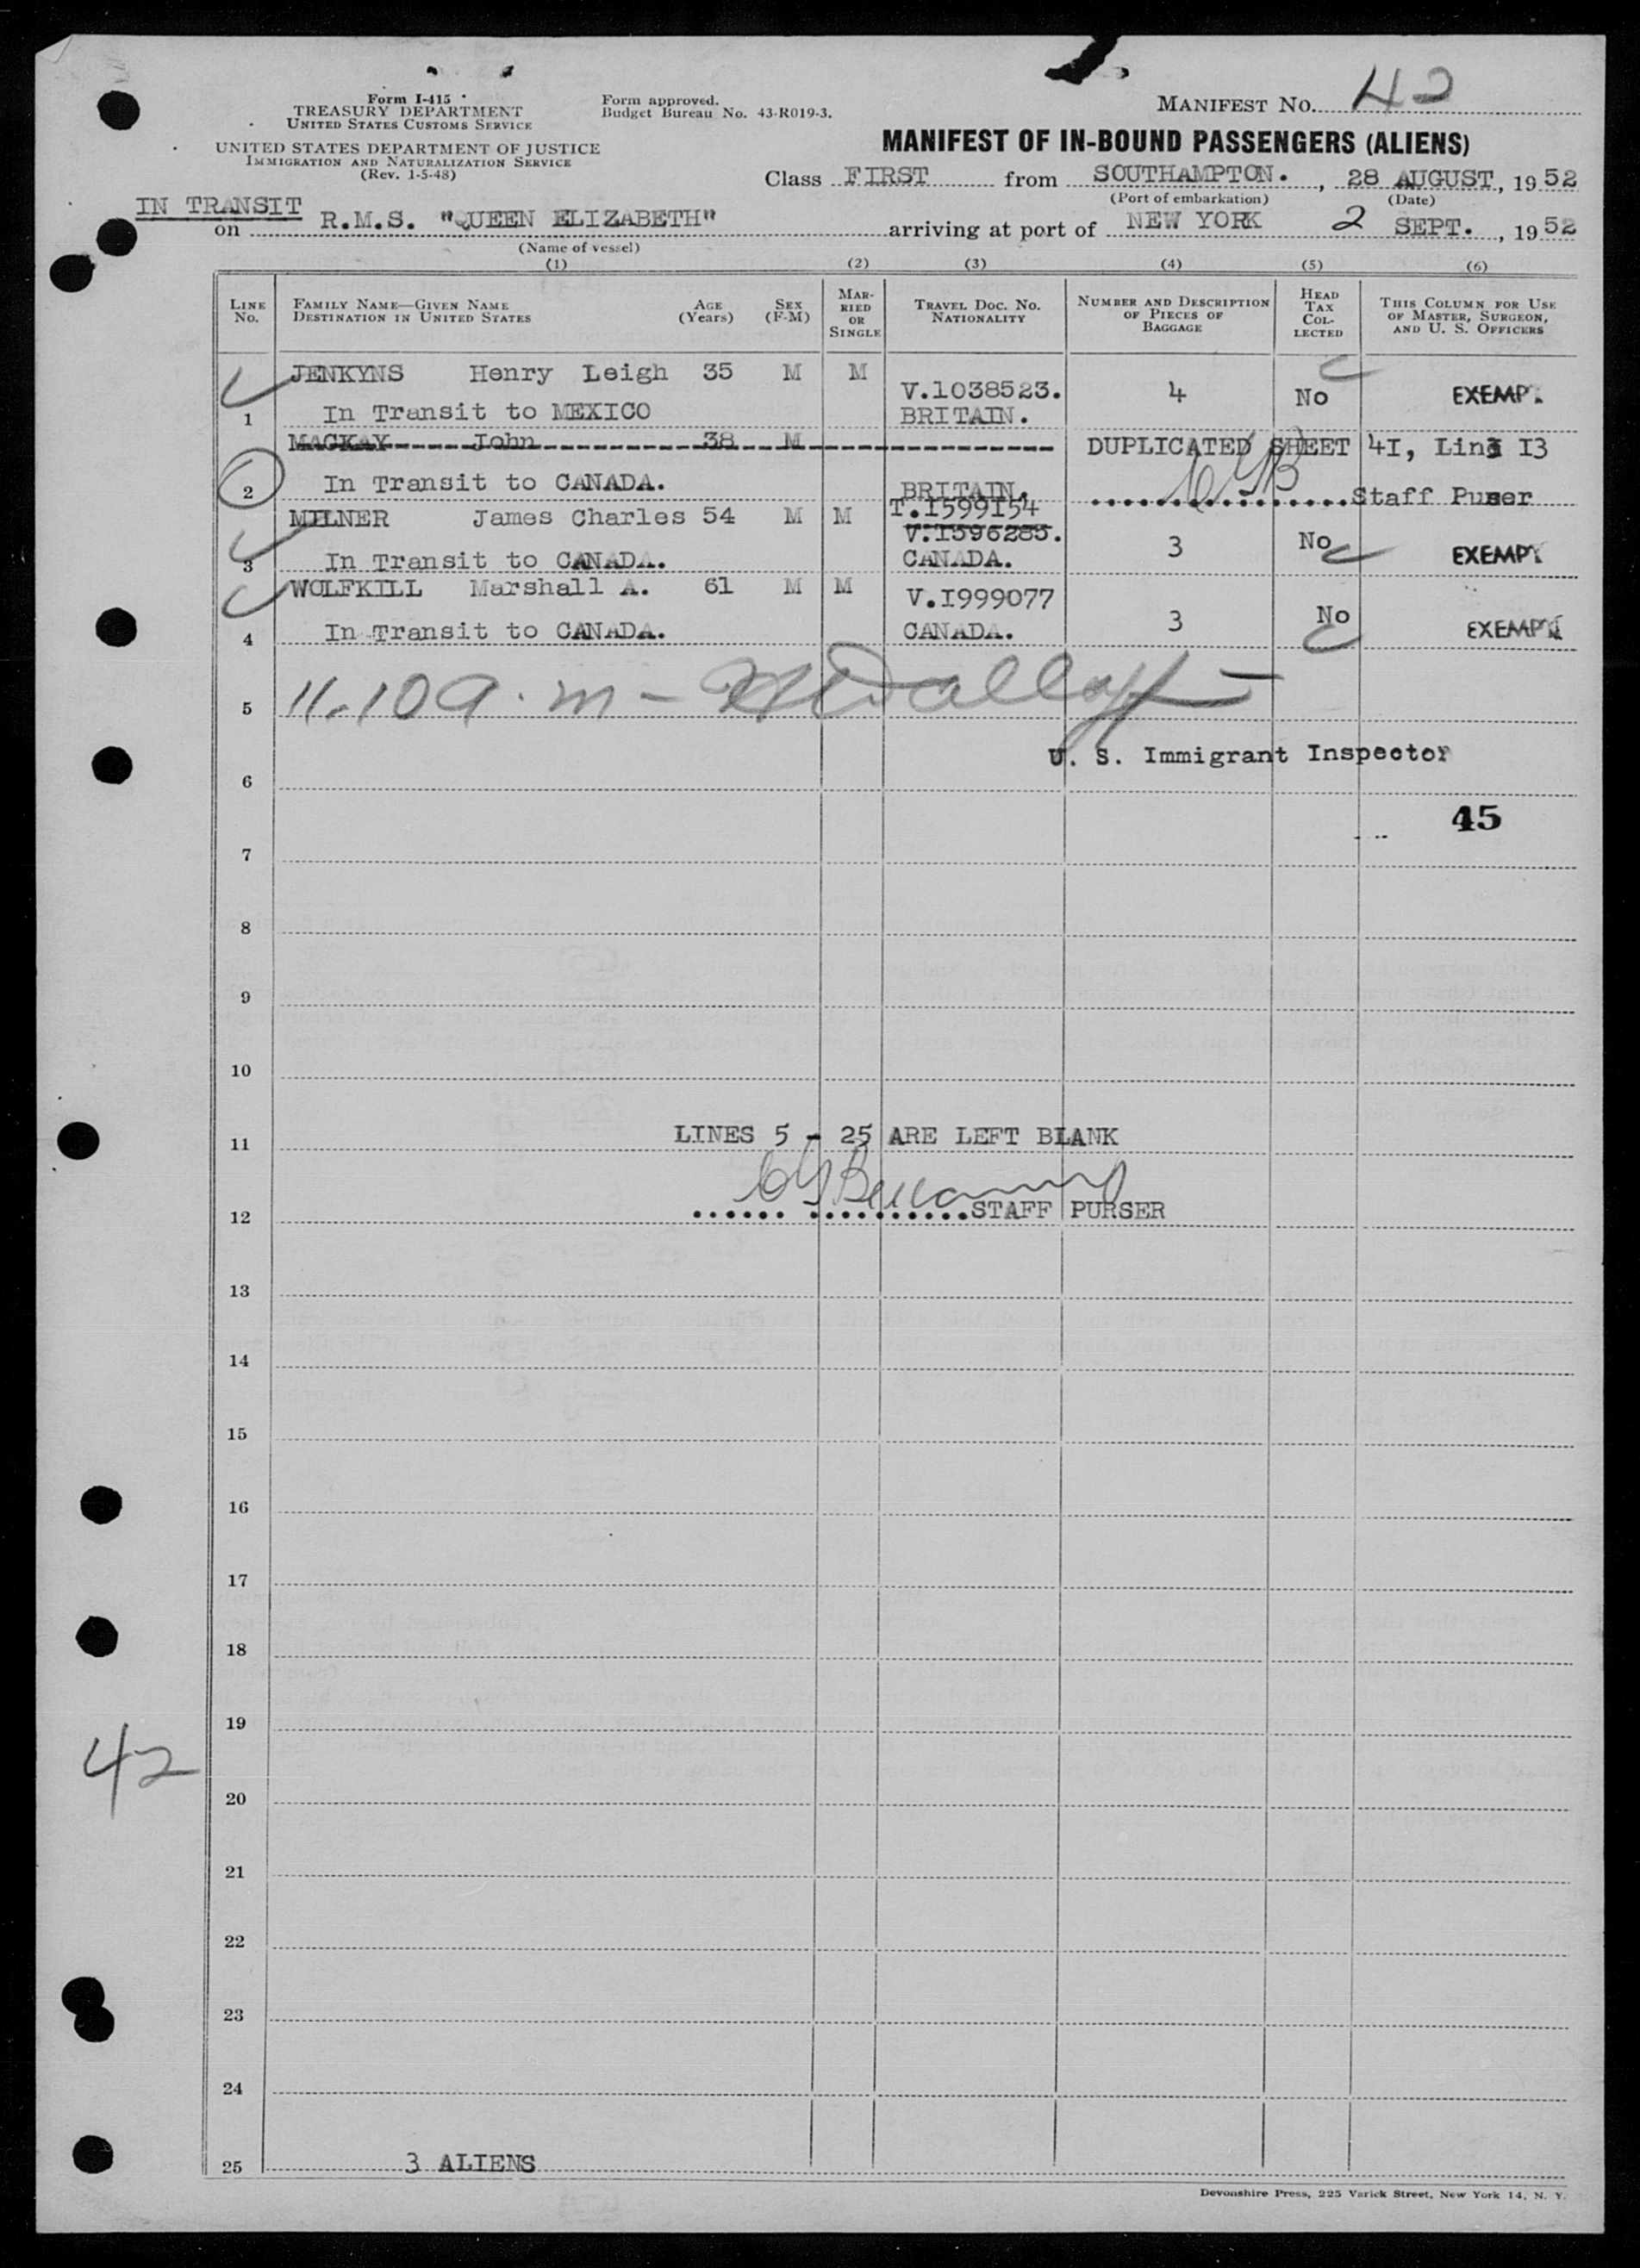 Form I-415
TREASURY DEPARTMENT
UNITED STATES CUSTOMS SERVICE
UNITED STATES DEPARTMENT OF JUSTICE
IMMIGRATION AND NATURALIZATION SERVICE
(Rev. 1-5-48)
Form approved.
Budget Bureau No. 43-R019-3.
MANIFEST NO. 42
MANIFEST OF IN-BOUND PASSENGERS (ALIENS)
Class FIRST from SOUTHAMPTON. , 28 AUGUST, 1952
(Port of embarkation) (Date)
IN TRANSIT
on R.M.S. "QUEEN ELIZABETH" arriving at port of NEW YORK 2 SEPT. , 1952
(Name of vessel)
(1) (2) (3) (4) (5) (6)
LINE No. FAMILY NAME—GIVEN NAME DESTINATION IN UNITED STATES AGE (Years) SEX (F-M) MARRIED OR SINGLE TRAVEL DOC. NO. NATIONALITY NUMBER AND DESCRIPTION OF PIECES OF BAGGAGE HEAD TAX COLLECTED THIS COLUMN FOR USE OF MASTER, SURGEON, AND U. S. OFFICERS
JENKYNS Henry Leigh 35 M M V.1038523. 4 No EXEMPT
1 In Transit to MEXICO BRITAIN.
MACKAY John 38 M DUPLICATED SHEET 4I, Line I3
2 In Transit to CANADA. BRITAIN. CYB Staff Purser
MILNER James Charles 54 M M T.I599I54
V.I596285. 3 No EXEMPT
3 In Transit to CANADA. CANADA.
WOLFKILL Marshall A. 61 M M V.I999077 3 No EXEMPT
4 In Transit to CANADA. CANADA.
5 11.10 a.m -
U. S. Immigrant Inspector
6
45
7
8
9
10
LINES 5 - 25 ARE LEFT BLANK
11
12 STAFF PURSER
13
14
15
16
17
18
19
42
20
21
22
23
24
25 3 ALIENS
Devonshire Press, 225 Varick Street, New York 14, N. Y.